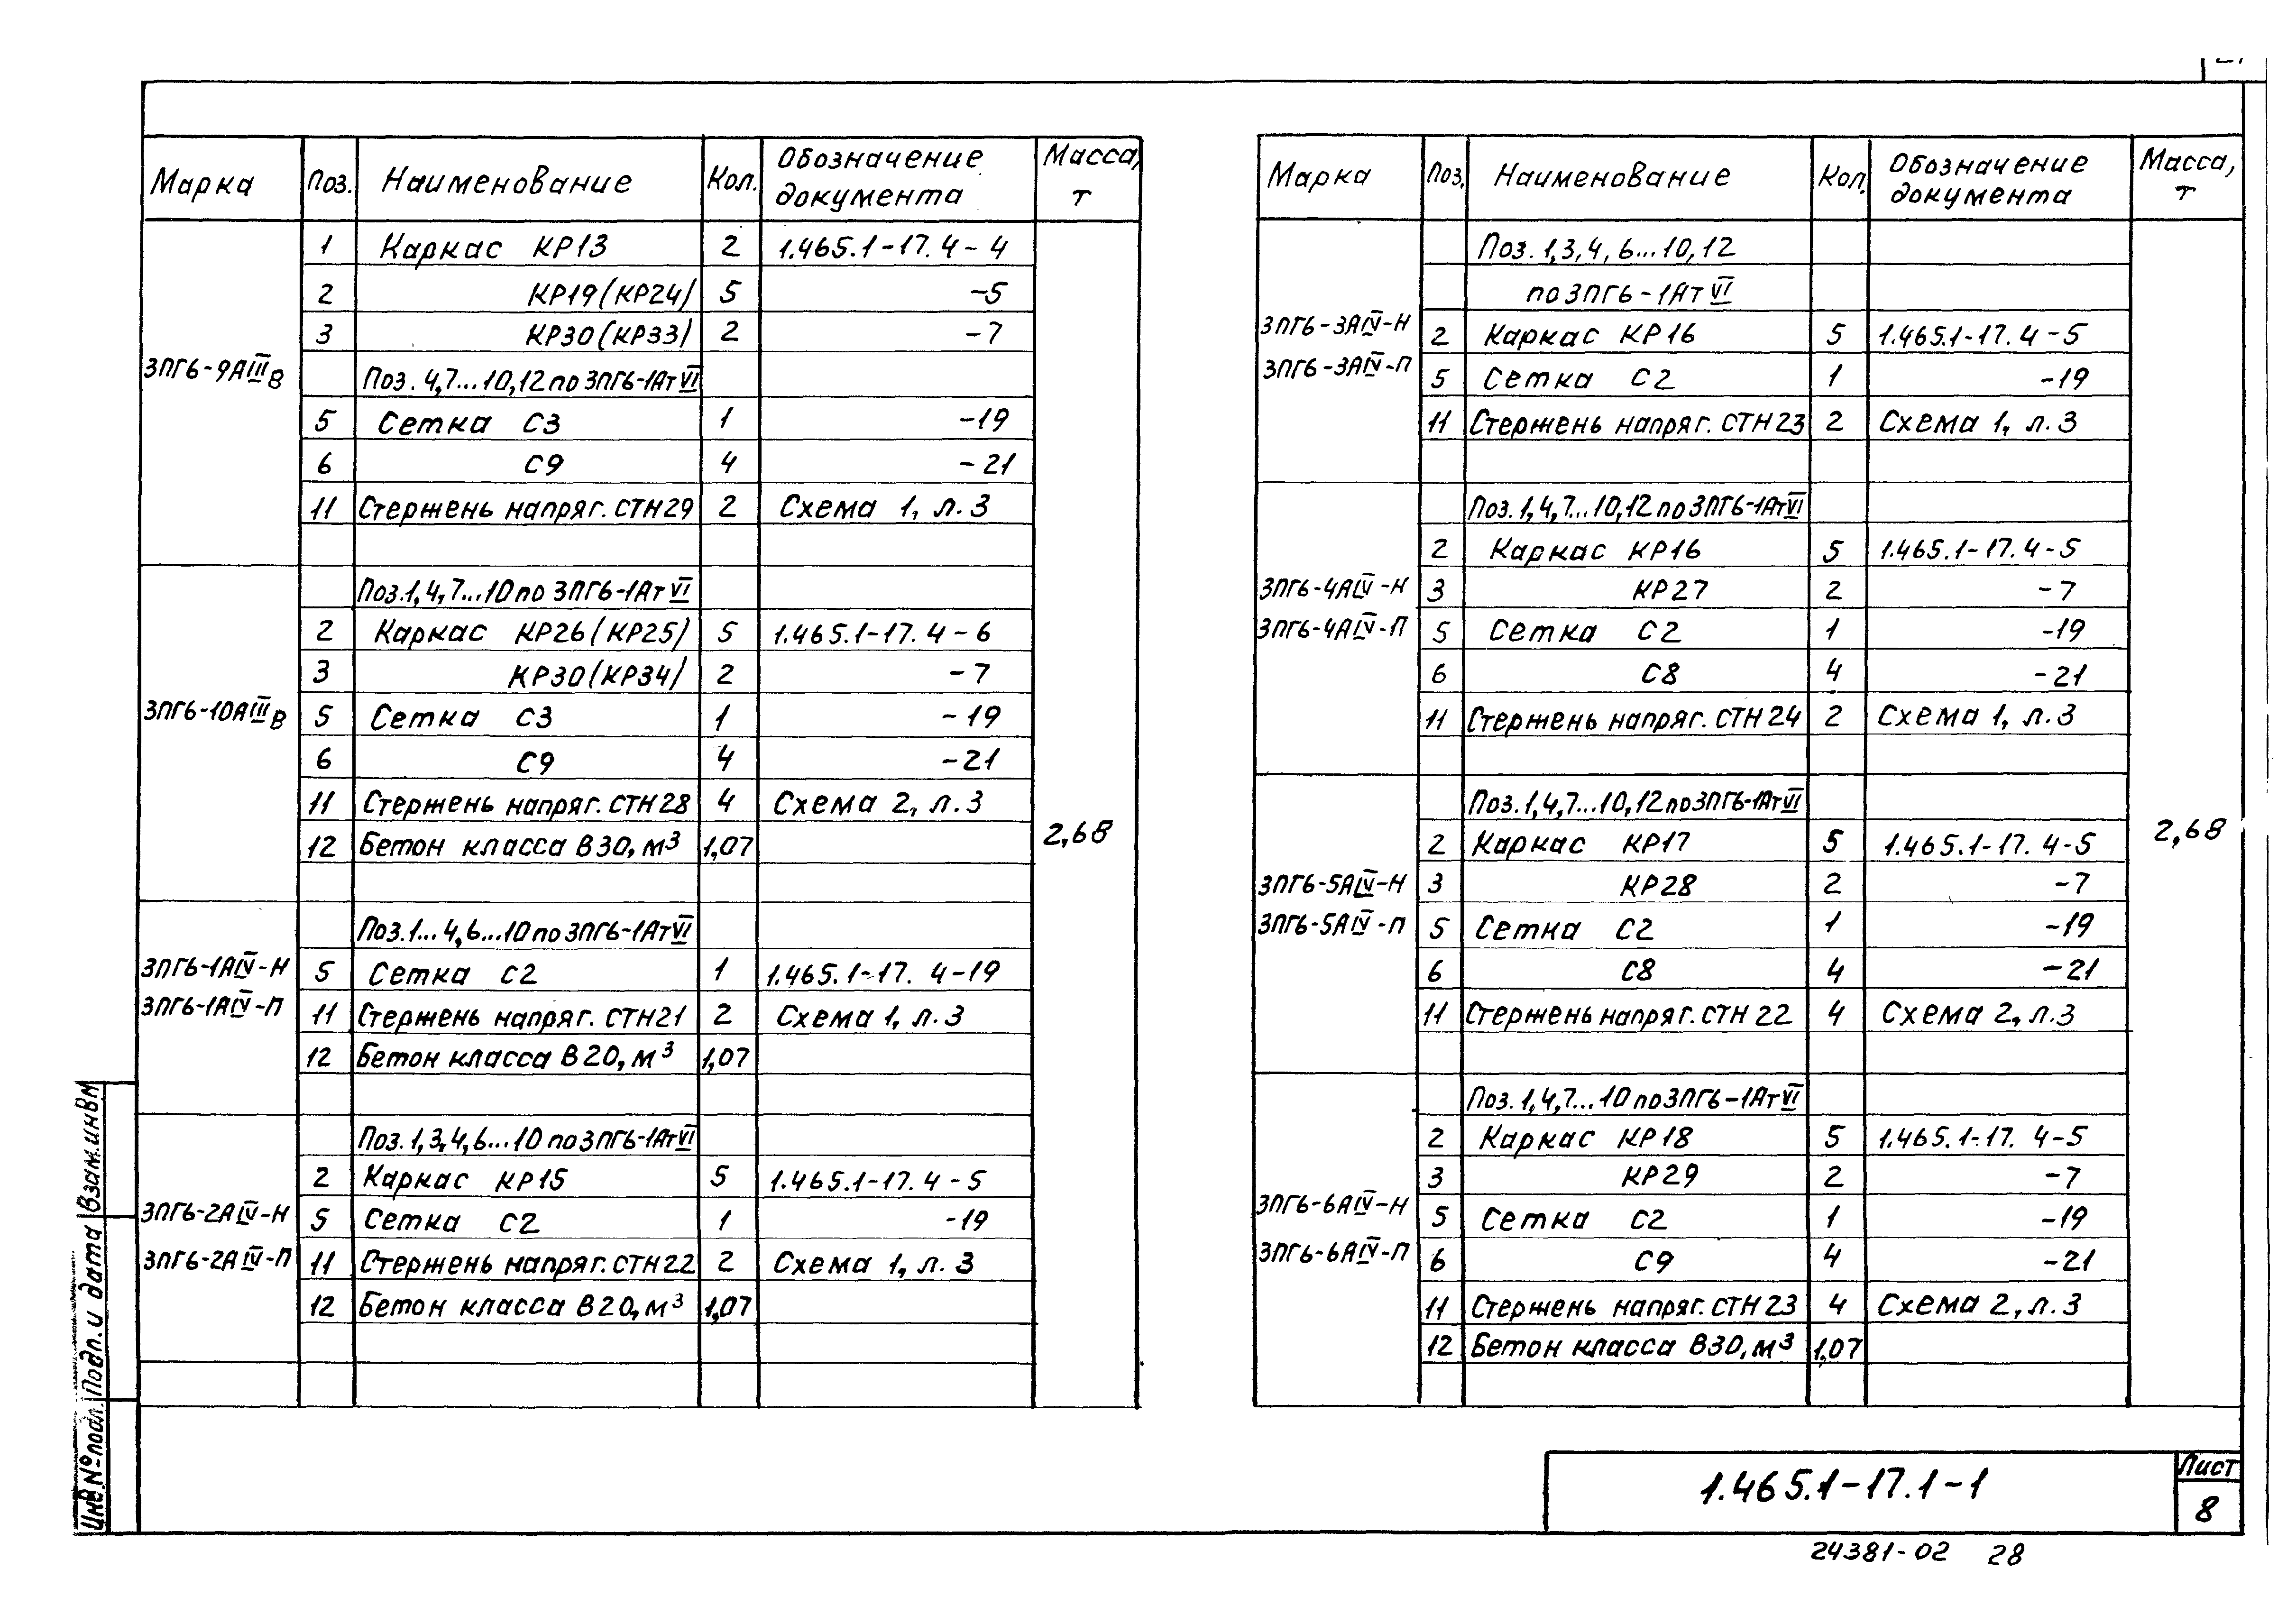 Марка Поз. Наименование Кол. Обозначение документа Масса, т
1 Каркас КР13 2 1.465.1-17.4-4
2 КР19(КР24) 5 -5
3 КР30(КР33) 2 -7
3ПГ6-9АIIIв
Поз. 4,7...10,12 по 3ПГ6-1АтVI
5 Сетка С3 1 -19
6 С9 4 -21
11 Стержень напряг. СТН29 2 Схема 1, л.3
Поз.1,4,7...10 по 3ПГ6-1АтVI
2 Каркас КР26(КР25) 5 1.465.1-17.4-6
3 КР30(КР34) 2 -7
3ПГ6-10АIIIв 5 Сетка С3 1 -19
6 С9 4 -21
11 Стержень напряг. СТН28 4 Схема 2, л.3
12 Бетон класса В30, м³ 1,07
2,68
Поз.1...4,6...10 по 3ПГ6-1АтVI
3ПГ6-1АIV-Н 5 Сетка С2 1 1.465.1-17.4-19
3ПГ6-1АIV-П 11 Стержень напряг. СТН21 2 Схема 1, л.3
12 Бетон класса В20, м³ 1,07
Поз.1,3,4,6...10 по 3ПГ6-1АтVI
2 Каркас КР15 5 1.465.1-17.4-5
3ПГ6-2АIV-Н 5 Сетка С2 1 -19
3ПГ6-2АIV-П 11 Стержень напряг. СТН22 2 Схема 1, л.3
12 Бетон класса В20, м³ 1,07
Марка Поз. Наименование Кол. Обозначение документа Масса, т
Поз. 1,3,4,6...10,12
по 3ПГ6-1АтVI
3ПГ6-3АIV-Н 2 Каркас КР16 5 1.465.1-17.4-5
3ПГ6-3АIV-П 5 Сетка С2 1 -19
11 Стержень напряг. СТН23 2 Схема 1, л.3
Поз.1,4,7...10,12 по 3ПГ6-1АтVI
2 Каркас КР16 5 1.465.1-17.4-5
3ПГ6-4АIV-Н 3 КР27 2 -7
3ПГ6-4АIV-П 5 Сетка С2 1 -19
6 С8 4 -21
11 Стержень напряг. СТН24 2 Схема 1, л.3
Поз.1,4,7...10,12 по 3ПГ6-1АтVI
2 Каркас КР17 5 1.465.1-17.4-5
2,68
3ПГ6-5АIV-Н 3 КР28 2 -7
3ПГ6-5АIV-П 5 Сетка С2 1 -19
6 С8 4 -21
11 Стержень напряг. СТН22 4 Схема 2, л.3
Поз.1,4,7...10 по 3ПГ6-1АтVI
2 Каркас КР18 5 1.465.1-17.4-5
3 КР29 2 -7
3ПГ6-6АIV-Н 5 Сетка С2 1 -19
3ПГ6-6АIV-П 6 С9 4 -21
11 Стержень напряг. СТН23 4 Схема 2, л.3
12 Бетон класса В30, м³ 1,07
Инв.№ подл. Подп. и дата Взам.инв№
1.465.1-17.1-1
Лист
8
24381-02 28